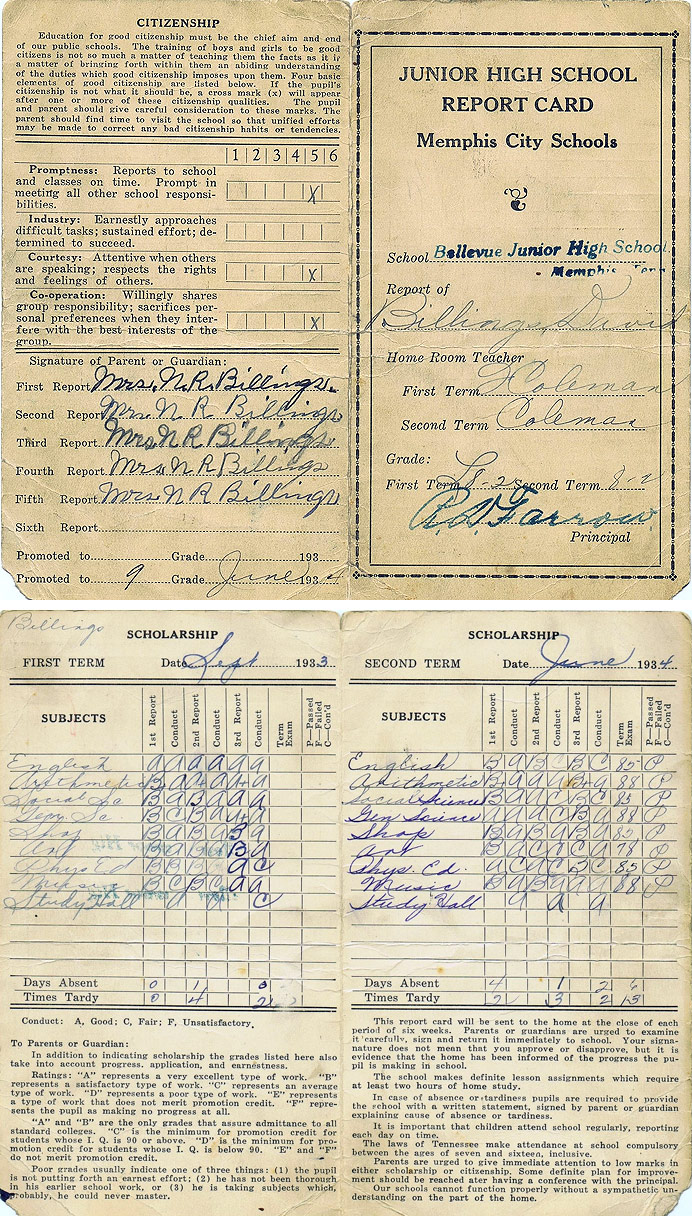 CITIZENSHIP
Education for good citizenship must be the chief aim and end
of our public schools. The training of boys and girls to be good
citizens is not so much a matter of teaching them the facts as it is
a matter of bringing forth within them an abiding understanding
of the duties which good citizenship imposes upon them. Four basic
elements of good citizenship are listed below. If the pupil's
citizenship is not what it should be, a cross mark (x) will appear
after one or more of these citizenship qualities. The pupil
and parent should give careful consideration to these marks. The
parent should find time to visit the school so that unified efforts
may be made to correct any bad citizenship habits or tendencies.
1 2 3 4 5 6
Promptness: Reports to school
and classes on time. Prompt in
meeting all other school responsi-
bilities. X
Industry: Earnestly approaches
difficult tasks; sustained effort; de-
termined to succeed.
Courtesy: Attentive when others
are speaking; respects the rights
and feelings of others. X
Co-operation: Willingly shares
group responsibility; sacrifices per-
sonal preferences when they inter-
fere with the best interests of the
group. X
Signature of Parent or Guardian:
First Report Mrs. N. R. Billings
Second Report Mrs. N R Billings
Third Report Mrs N R Billings
Fourth Report Mrs N R Billings
Fifth Report Mrs N R Billings
Sixth Report
Promoted to Grade 193
Promoted to 9 Grade June 1934
JUNIOR HIGH SCHOOL
REPORT CARD
Memphis City Schools
School Bellevue Junior High School
Memphis Tenn
Report of
Billings, David
Home Room Teacher
First Term Coleman
Second Term Coleman
Grade:
First Term 8-2 Second Term 8-2
Farrow
Principal
Billings
SCHOLARSHIP
FIRST TERM Date Sept 1933
SUBJECTS
1st Report
Conduct
2nd Report
Conduct
3rd Report
Conduct
Term Exam
P—Passed
F—Failed
C—Con'd
English A A A A A A
Arithmetic
Social Sc B A B A A A
Gen. Sc
Shop B A B A B A
Art
Phys Ed
Music B C B C A A
Study Hall
Days Absent 0 1 0
Times Tardy 0 4 2
Conduct: A, Good; C, Fair; F, Unsatisfactory.
To Parents or Guardian:
In addition to indicating scholarship the grades listed here also
take into account progress, application, and earnestness.
Ratings: "A" represents a very excellent type of work. "B"
represents a satisfactory type of work. "C" represents an average
type of work. "D" represents a poor type of work. "E" represents
a type of work that does not merit promotion credit. "F" repre-
sents the pupil as making no progress at all.
"A" and "B" are the only grades that assure admittance to all
standard colleges. "C" is the minimum for promotion credit for
students whose I. Q. is 90 or above. "D" is the minimum for pro-
motion credit for students whose I. Q. is below 90. "E" and "F"
do not merit promotion credit.
Poor grades usually indicate one of three things: (1) the pupil
is not putting forth an earnest effort; (2) he has not been thorough
in his earlier school work, or (3) he is taking subjects which,
probably, he could never master.
SCHOLARSHIP
SECOND TERM Date June 1934
SUBJECTS
1st Report
Conduct
2nd Report
Conduct
3rd Report
Conduct
Term Exam
P—Passed
F—Failed
C—Con'd
English B A B C B C 85 P
Arithmetic 88 P
Social Science B A A C B C 85 P
Gen Science A A C B A 88 P
Shop B A B A B A 85 P
Art 78 P
Phys. Ed. A C A C B C 85 P
Music B A B A A A 88 P
Study Hall A A A
Days Absent 4 1 2 6
Times Tardy 2 3 2 15
This report card will be sent to the home at the close of each
period of six weeks. Parents or guardians are urged to examine
it carefully, sign and return it immediately to school. Your signa-
nature does not mean that you approve or disapprove, but it is
evidence that the home has been informed of the progress the pu-
pil is making in school.
The school makes definite lesson assignments which require
at least two hours of home study.
In case of absence or tardiness pupils are required to provide
the school with a written statement, signed by parent or guardian
explaining cause of absence or tardiness.
It is important that children attend school regularly, reporting
each day on time.
The laws of Tennessee make attendance at school compulsory
between the ages of seven and sixteen, inclusive.
Parents are urged to give immediate attention to low marks in
either scholarship or citizenship. Some definite plan for improve-
ment should be reached ater having a conference with the principal.
Our schools cannot function properly without a sympathetic un-
derstanding on the part of the home.